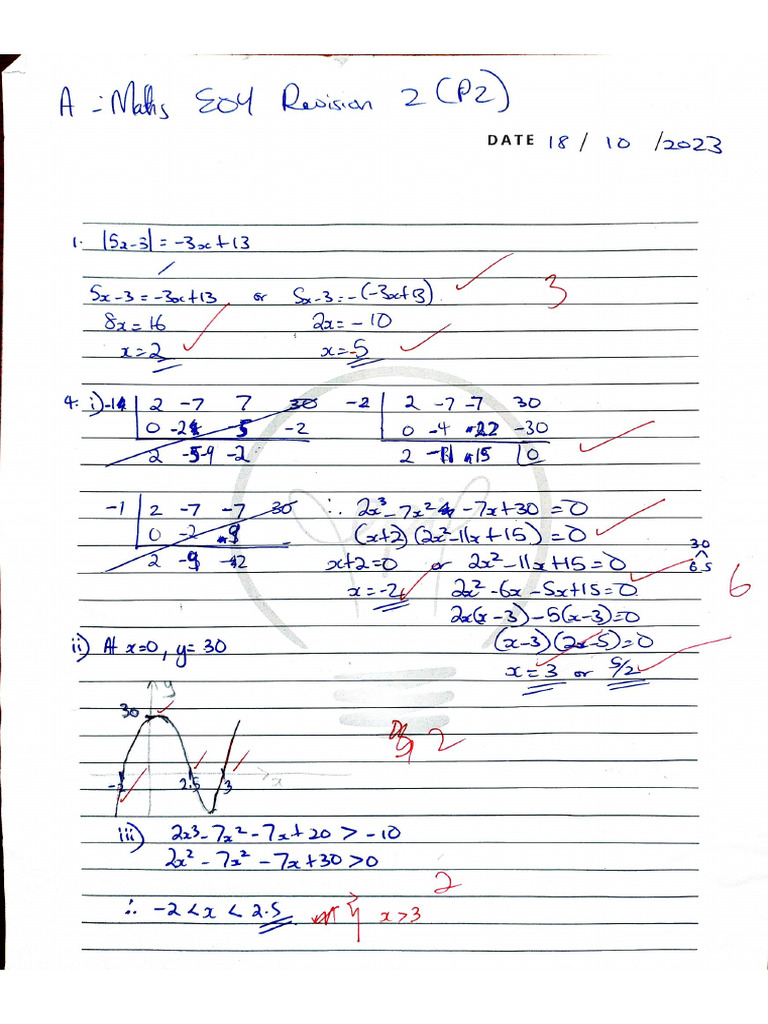 A-Maths EOY Revision 2 (P2)
DATE 18 / 10 /2023
1. |5x-3| = -3x+13
5x-3 = -3x+13 or 5x-3 = -(-3x+13)
3
8x = 16 2x = -10
x = 2 x = -5
4. i) 2 -7 7 30 -2 | 2 -7 -7 30
0 -2 0 -4 -22 -30
2 -9 -2 2 -11 15 | 0
-1 | 2 -7 -7 30 ∴ 2x³ - 7x² - 7x + 30 = 0
0 -2 9 (x+2)(2x²-11x+15) = 0
30
2 -9 x+2=0 or 2x²-11x+15=0 6 5
x = -2 2x²-6x-5x+15=0
6
2x(x-3)-5(x-3)=0
ii) At x=0, y=30 (x-3)(2x-5)=0
x = 3 or 5/2
y
30
2
-2 2.5 3 x
iii) 2x3-7x²-7x+20 > -10
2x²-7x²-7x+30 > 0
2
∴ -2 < x < 2.5 x>3